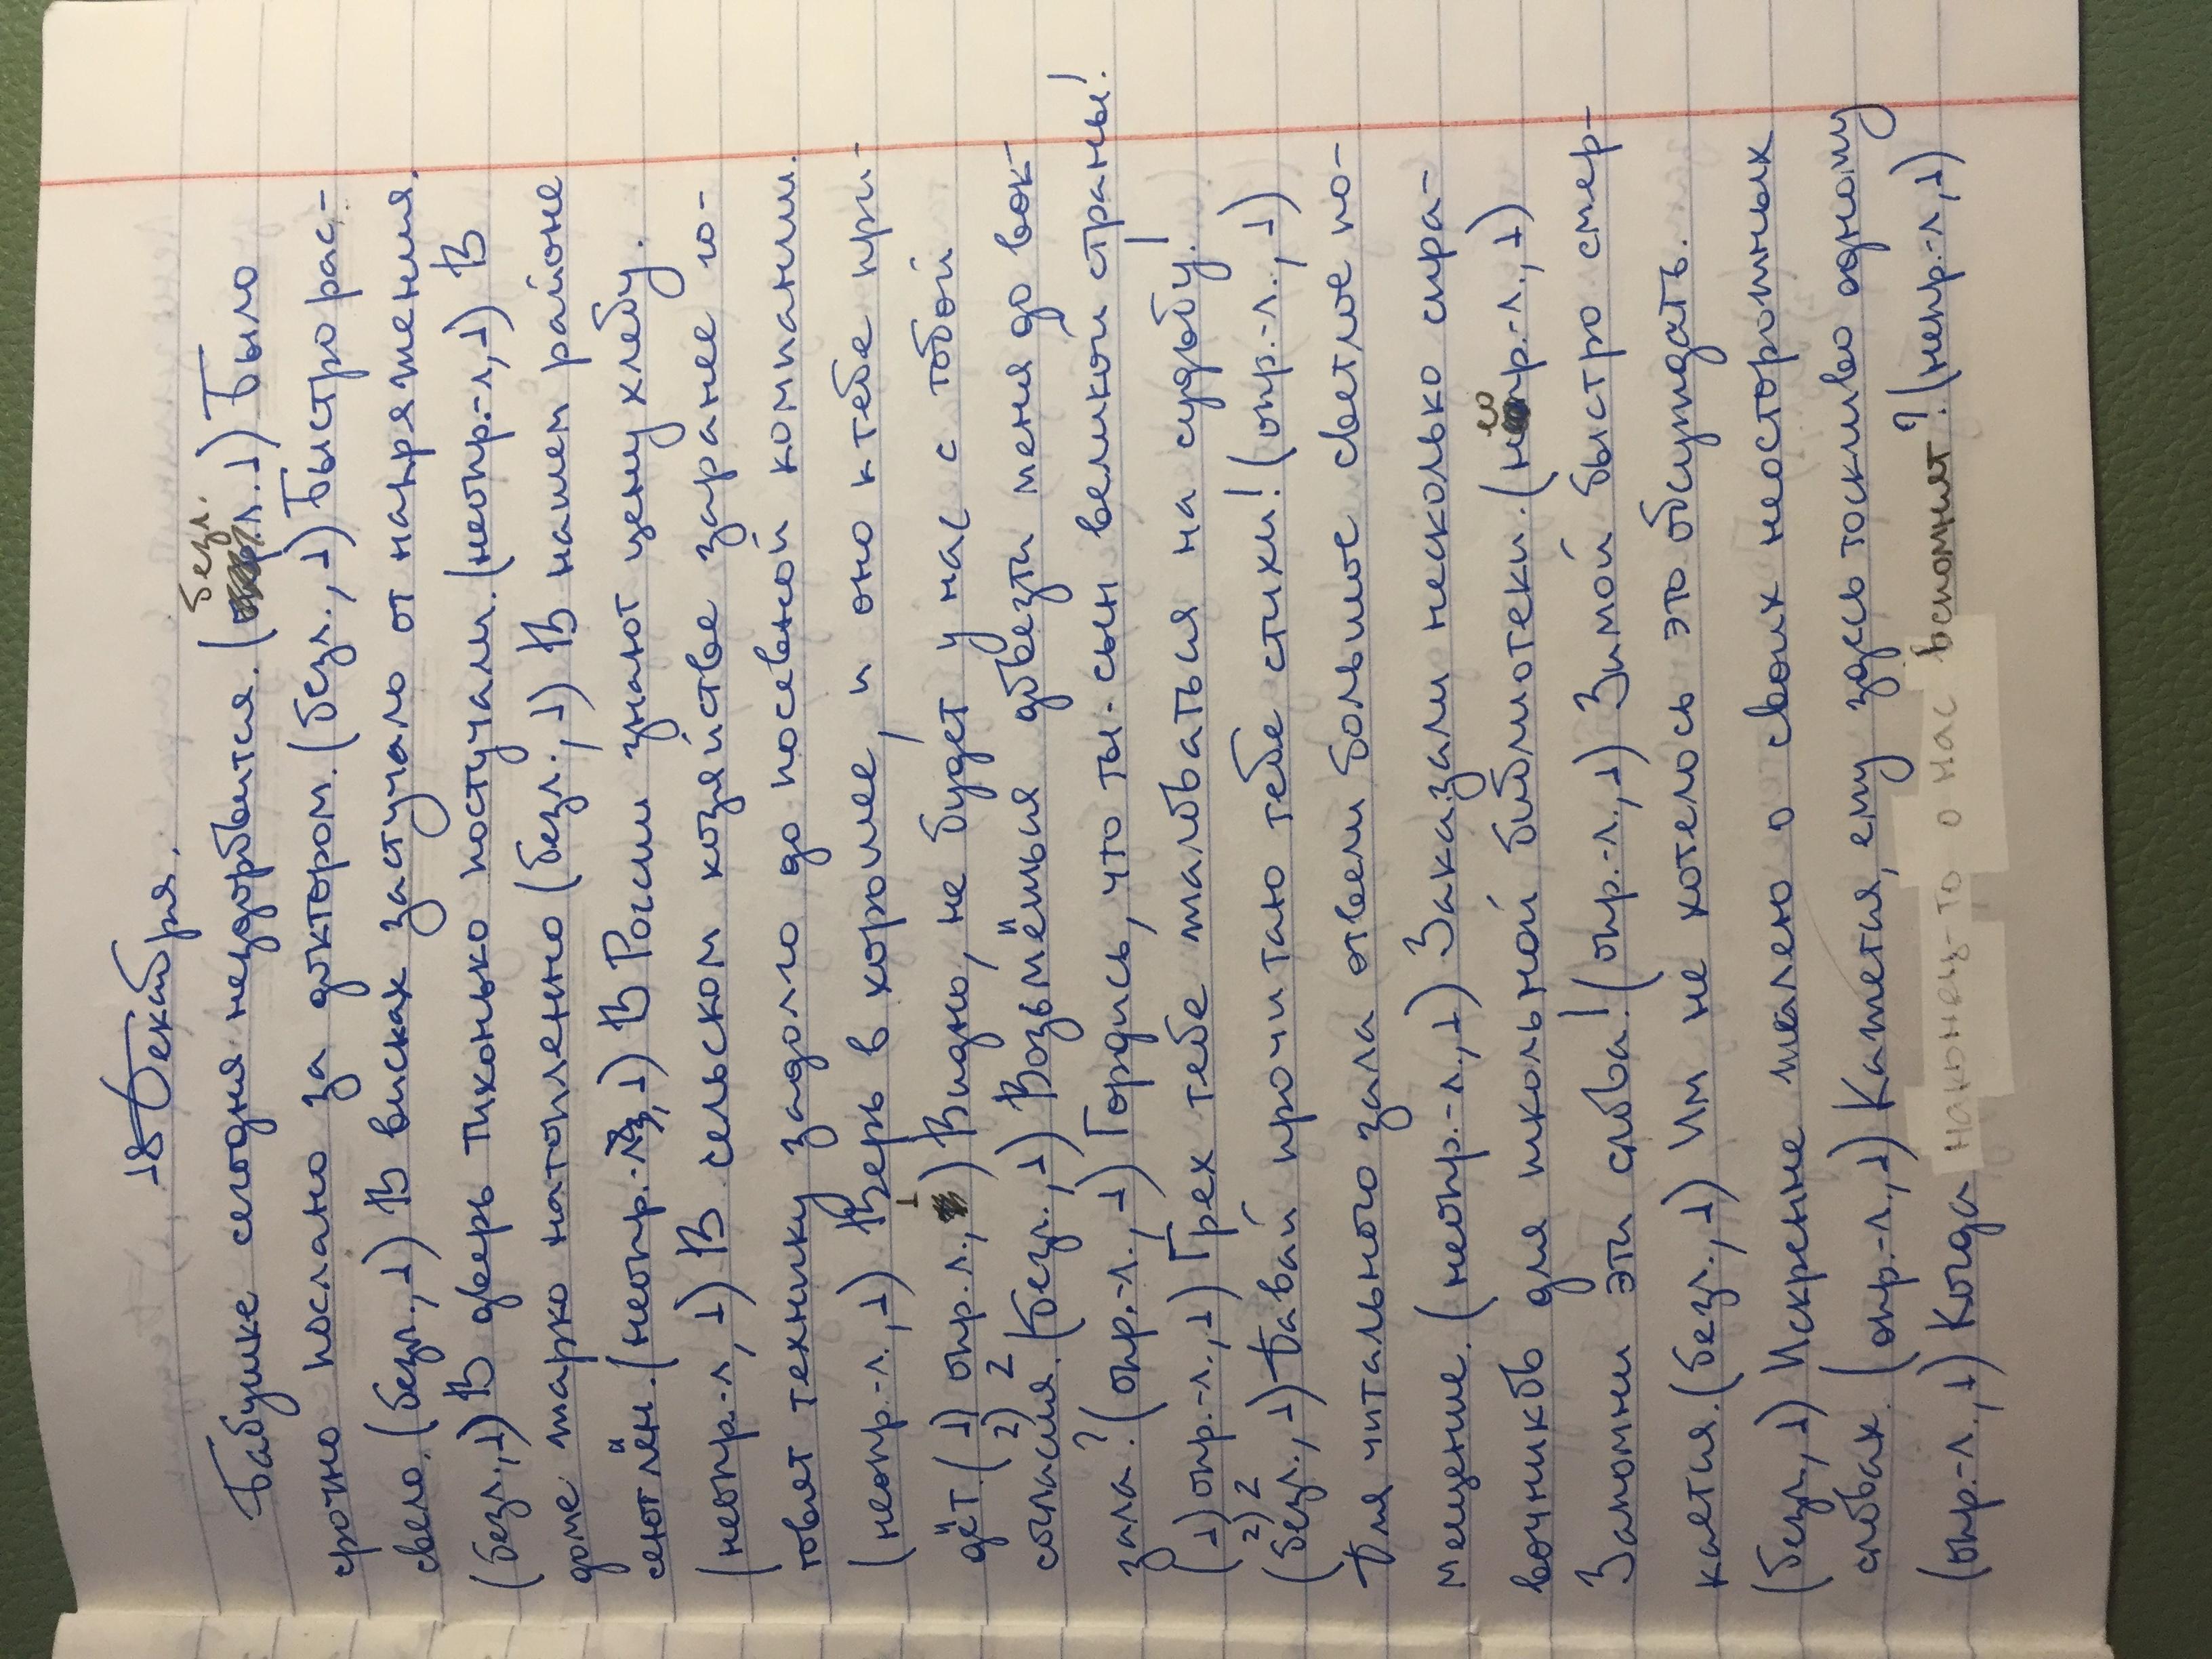 18 Декабря.
Бабушке сегодня нездоровится. (безл. л. 1) Было
срочно послано за доктором. (безл., 1) Быстро рас-
свело. (безл., 1) В висках застучало от напряжения.
(безл., 1) В дверь тихонько постучали. (неопр.-л, 1) В
доме жарко натопленно (безл., 1) В нашем районе
сеют лён. (неопр.-л, 1) В России знают цену хлебу.
(неопр.-л, 1) В сельском хозяйстве заранее го-
товят технику задолго до посевной компании.
(неопр.-л., 1) Верь в хорошее, и оно к тебе при-
дёт. (1) опр.-л., 1
2) 2) Видно, не будет у нас с тобой
согласия. (безл., 1) Возьмёшься довезти меня до вок-
зала? (опр.-л., 1) Гордись, что ты - сын великой страны!
(1) опр.-л., 1) Грех тебе жаловаться на судьбу!
2) 2
(безл., 1) Давай прочитаю тебе стихи! (опр.-л., 1)
Для читального зала отвели большое светлое по-
мещение. (неопр.-л., 1) Заказали несколько спра-
вочников для школьной библиотеки. (неопр.-л., 1)
Запомни эти слова! (опр.-л., 1) Зимой быстро смер-
кается. (безл., 1) Им не хотелось это обсуждать.
(безл., 1) Искренне жалею о своих неосторожных
словах. (опр.-л., 1) Кажется, ему здесь тоскливо одному
(опр.-л., 1) Когда наконец-то о нас вспомнит? (непр.-л, 1)